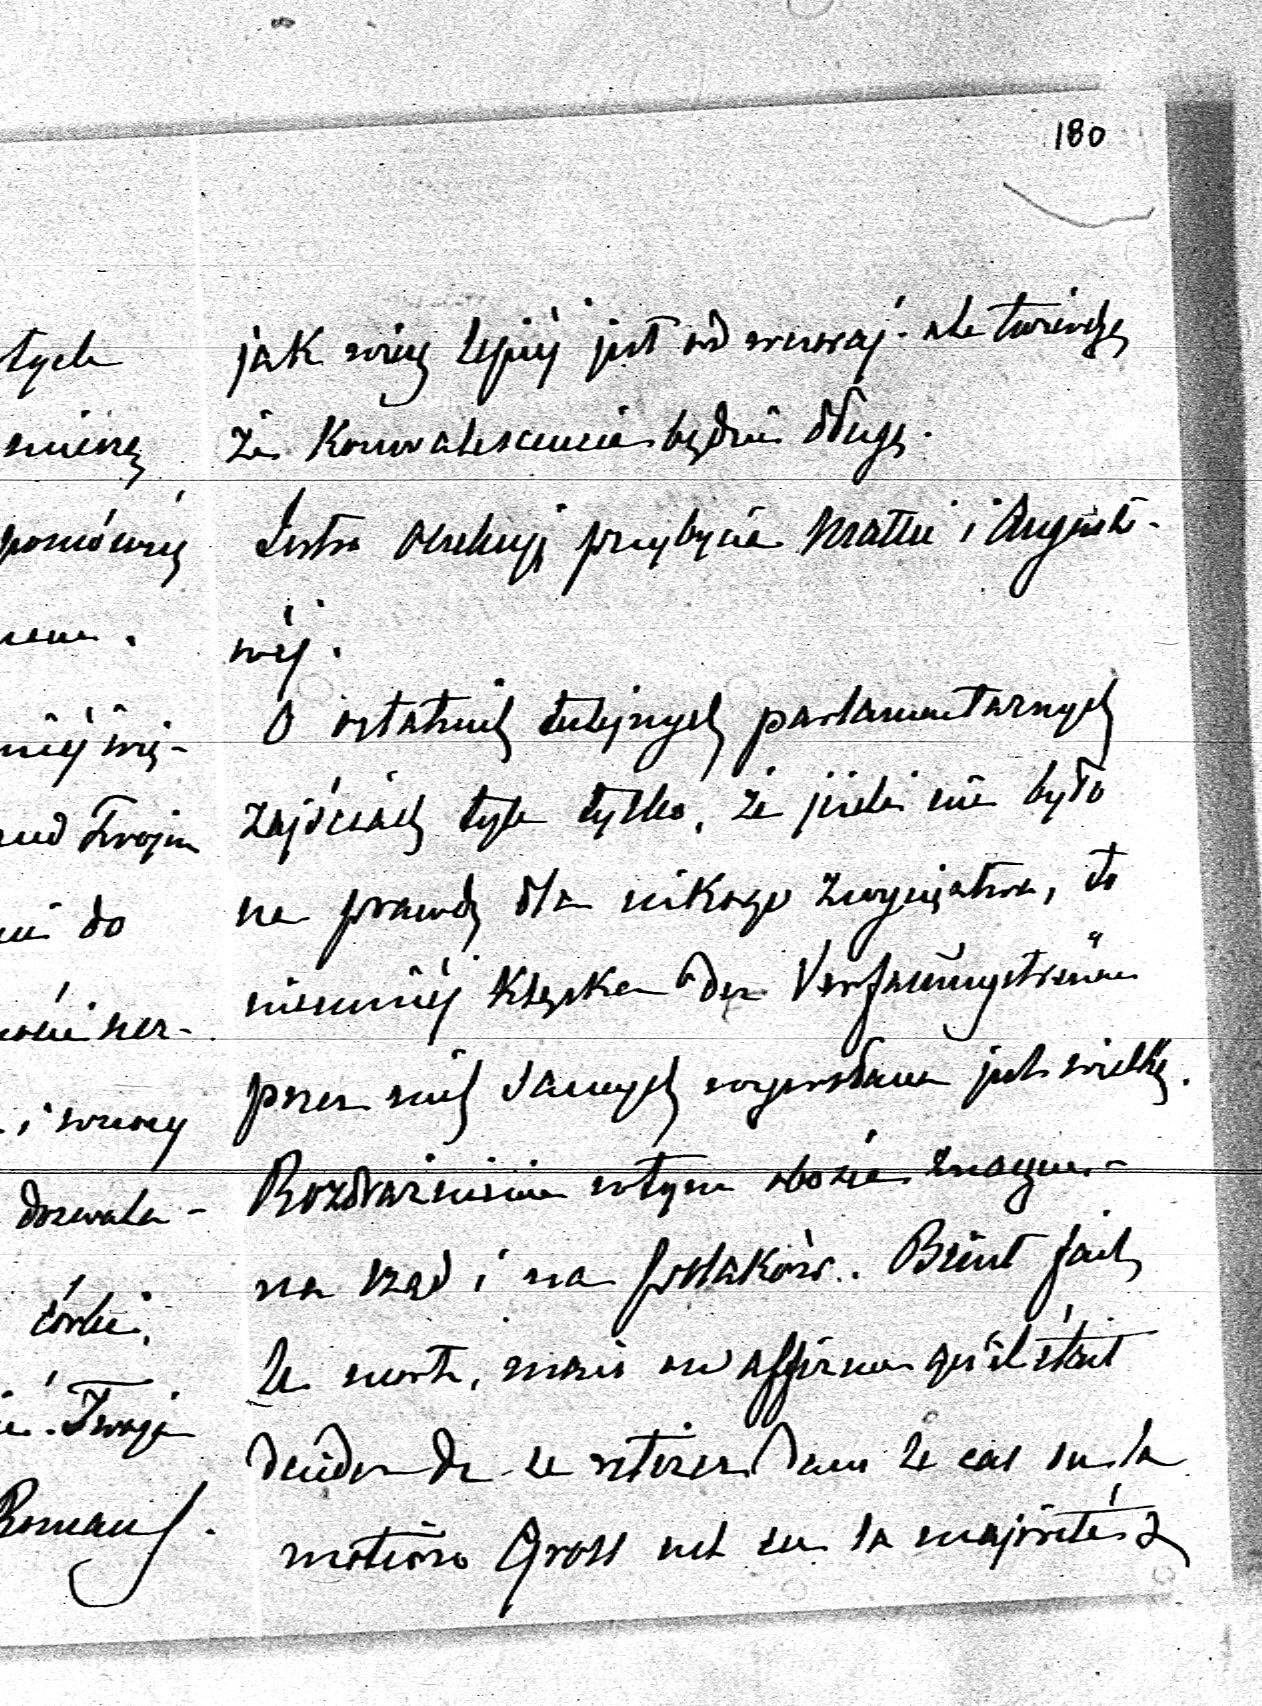 180
tych
śmierę
ponówię
niéj wię-
nad Twojem
do
i wiesz
dozwala-
córki,
Twoja
Roman
jak więc lepiéj jest od wczoraj. ale twierdzę
że Konwalescencia będzie długą.
Jutro oczekuję przybycia Matki i Augusto-
wéj.
O ostatnich tutejszych parlamentarnych
zajściach tyle tylko, że jeżeli nie było
na prawdę dla nikogo zwycięstwa, to
niemniéj klęska der Verfassungstreuen
przez nich samych wywołana jest wielką.
Rozdrażnienie w tym obozie znaczne -
na rząd i na polaków. Beust fait
le mort, mais on affirme qu'il était
décidé de se retirer dans le cas où la
motion Gross eut eu la majorité 2/